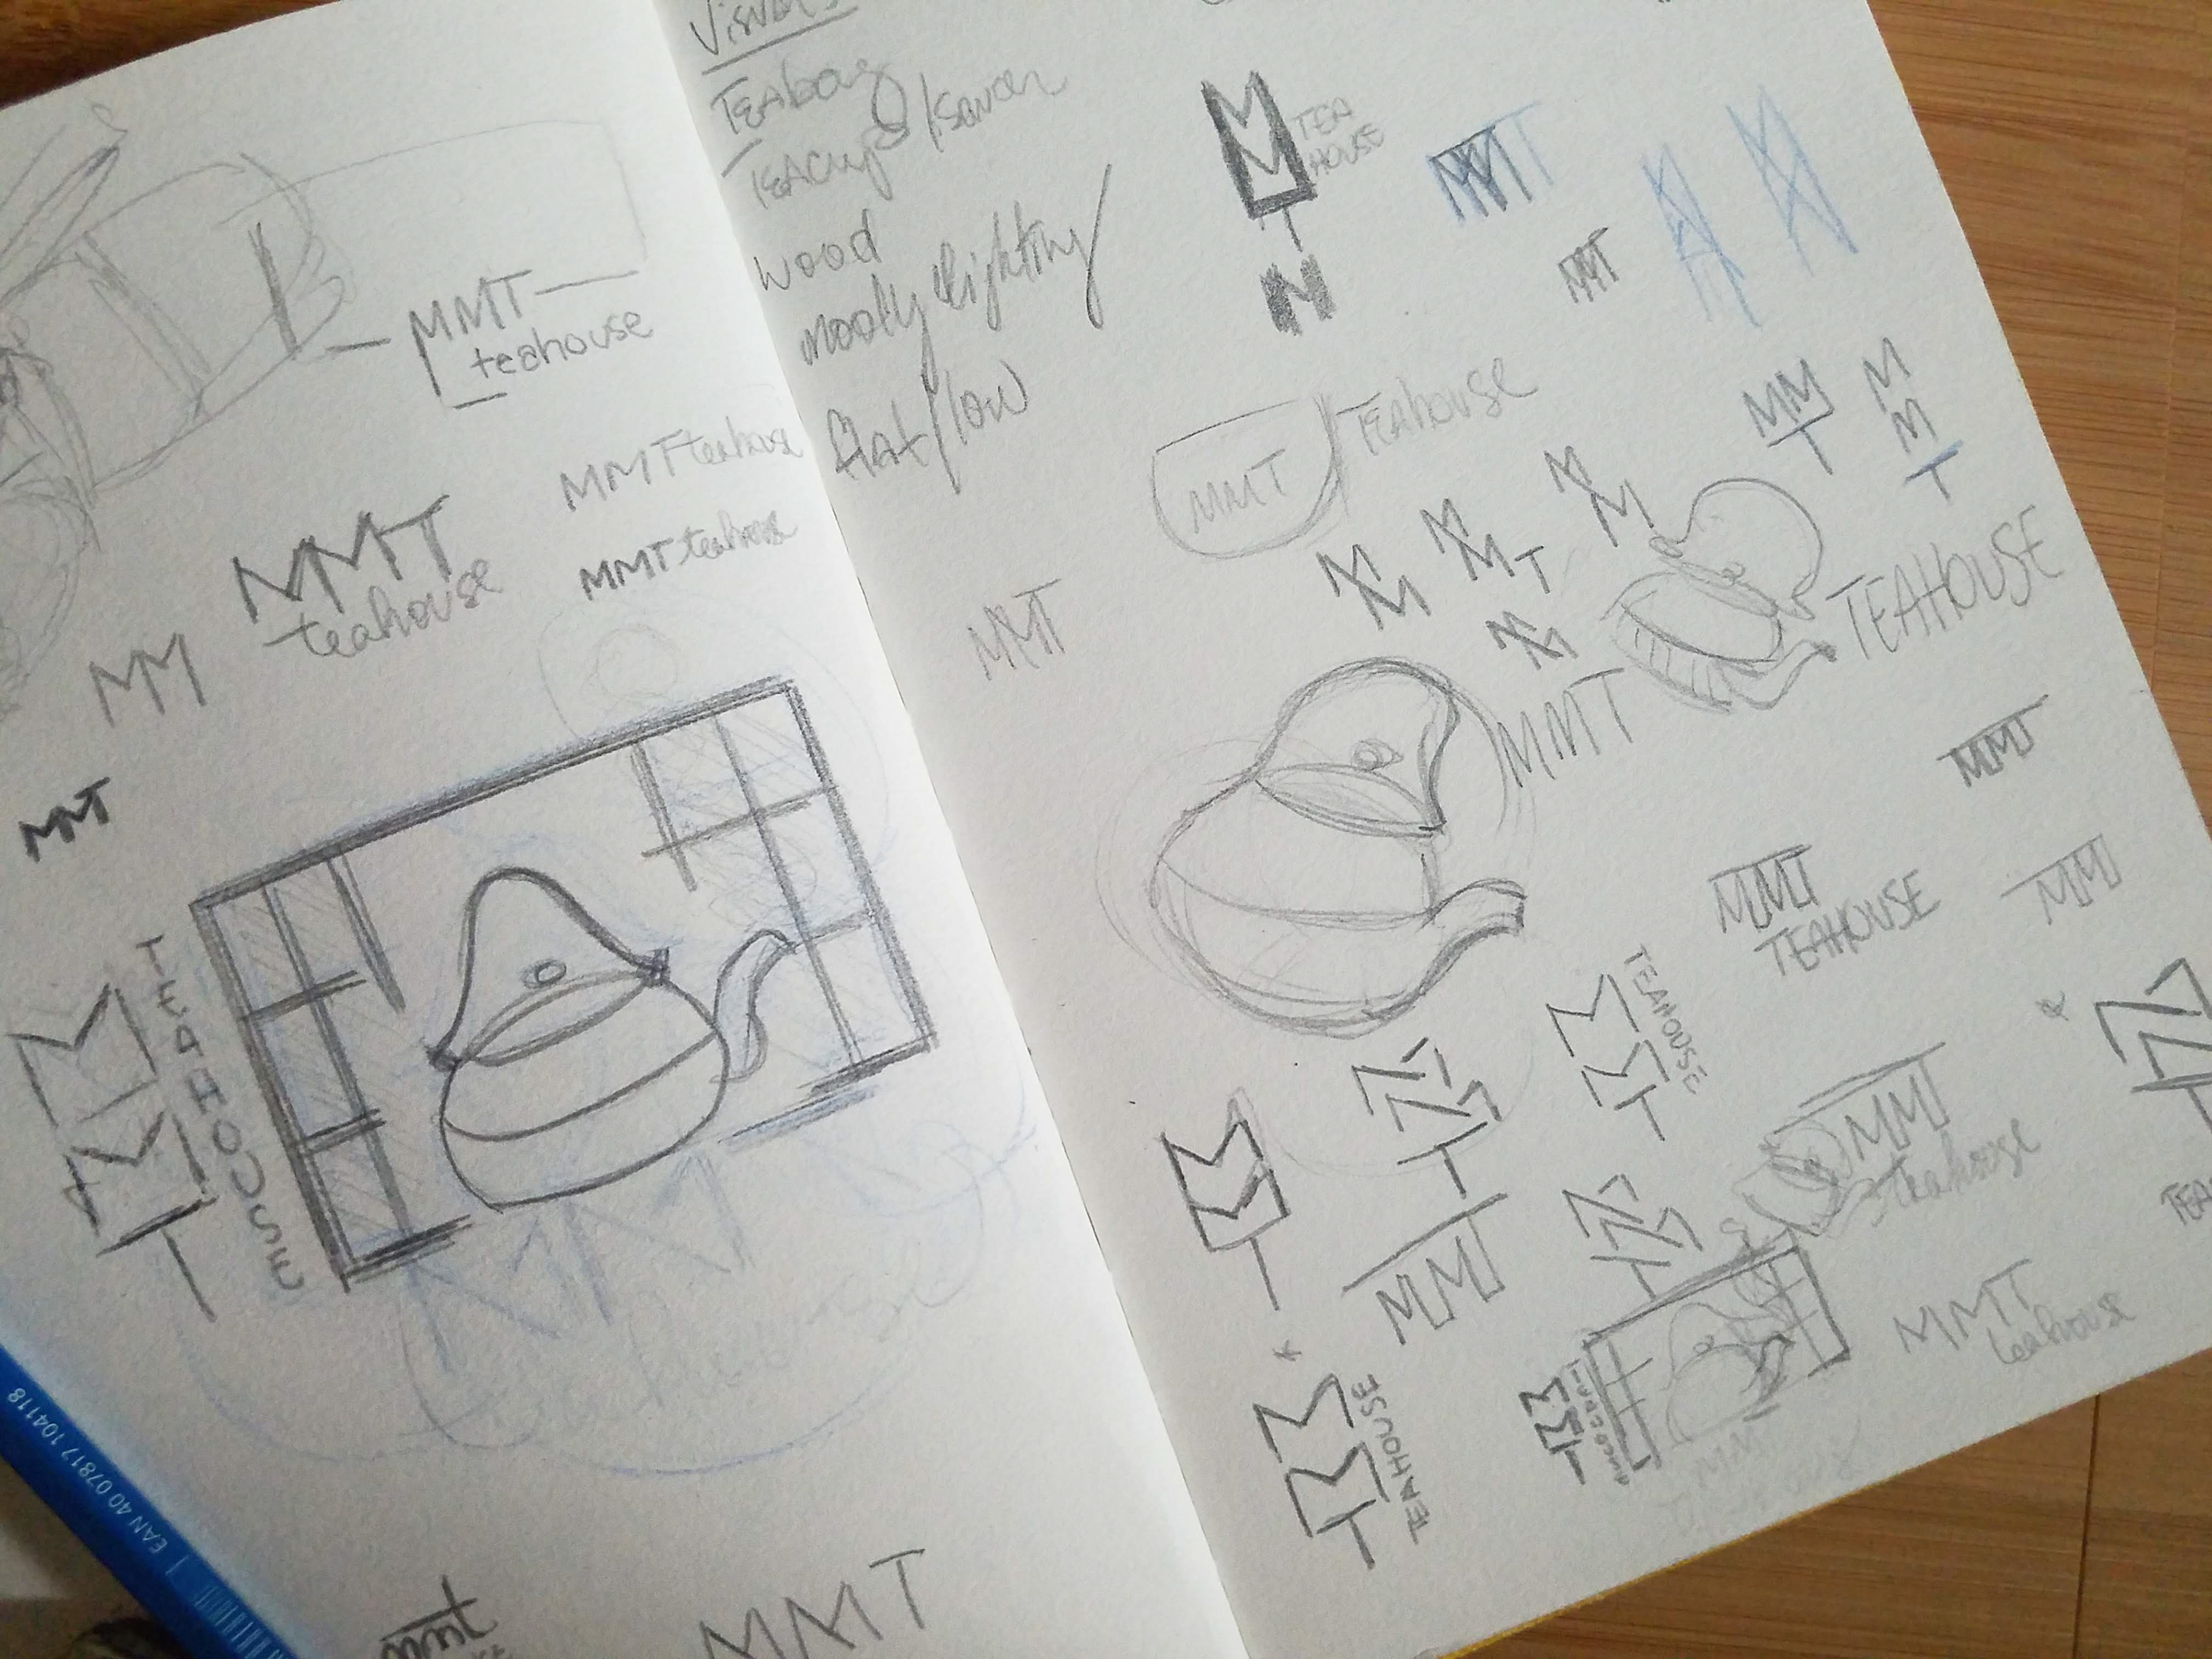 MMT
teahouse
MMT teahouse
MMT
teahouse
MMT teahouse
MM
MMT
TEAHOUSE
M
M
T
mmt
MMT
EAN 40 07817 104118
Visuals
TEAbag
TEAcups/saucer
wood
moody lighting
flat/low
M
M
T
TEA
HOUSE
M
MMT
MMT
MMT
TEAhouse
MM
T
M
M
T
MM
MMT
MM
MM
MMT
MMT
TEAHOUSE
MMT
MMT
TEAHOUSE
MM
M
M
T
TEAHOUSE
M
M
T
M
M
T
MMT
teahouse
M
M
T
TEA
M
M
T
MM
M
M
T
TEAHOUSE
M
M
T
MMT
teahouse
MMT